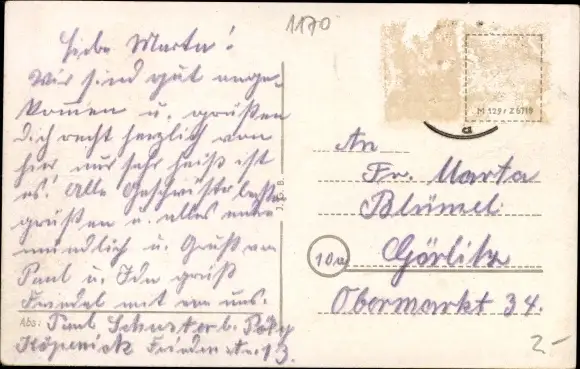 1170
Liebe Marta!
Wir sind gut ange-
kommen u. grüßen
Dich recht herzlich von
hier nur sehr heiß ist
es. Alle Geschwister
grüßen u. alles
mündlich u. Gruß von
Paul u. Ida
mit von uns.
Abs: Paul Schuster b.
Köpenick 13.
M 129 / Z 6719
An
Fr. Marta
Blümel
10a Görlitz
Obermarkt 34.
2-